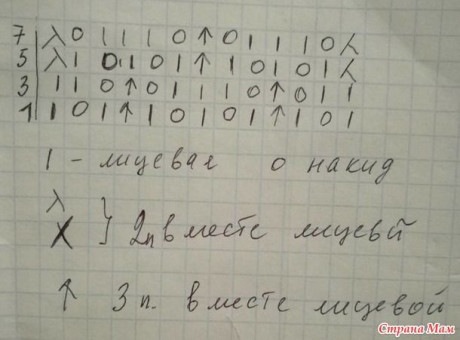 7 | λ 0 1 1 1 0 ↑ 0 1 1 1 0 ⅄
5 | λ 1 0 1 0 1 ↑ 1 0 1 0 1 ⅄
3 | 1 1 0 ↑ 0 1 1 1 0 ↑ 0 1 1
1 | 1 0 1 ↑ 1 0 1 0 1 ↑ 1 0 1
1 - лицевая 0 накид
λ
⅄ } 2п вместе лицевой
↑ 3 п. вместе лицевой
Страна Мам